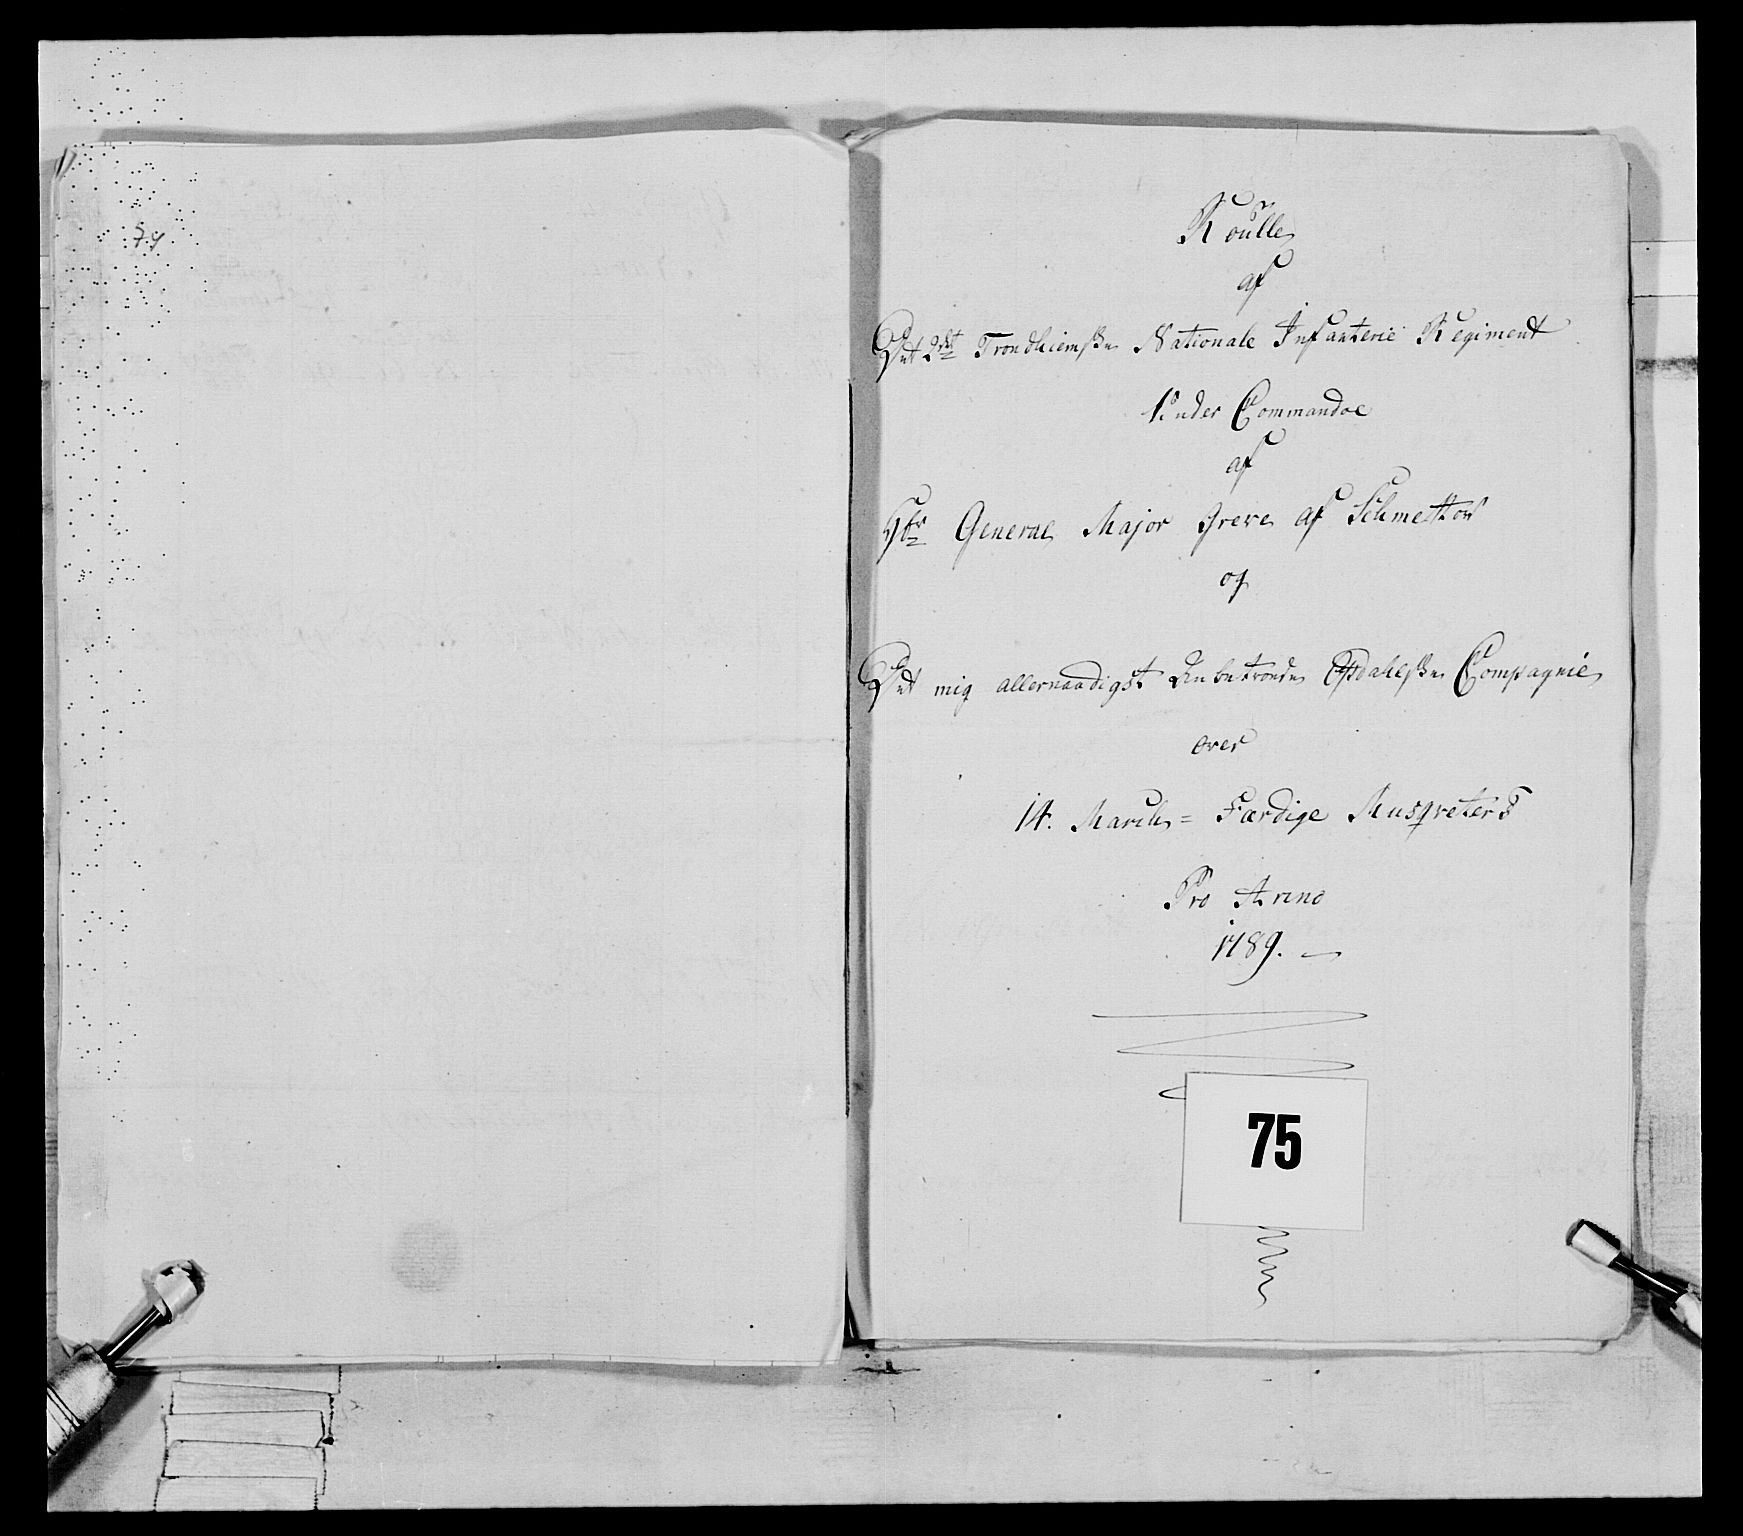 74
Roulle
af
Det 2det Trondhiemske Nationale Infanterie Regiment
Under Commandoe
af
Hr General Major Greve af Schmettow
og
Det mig allernaadigst Anbetroede Opdahlske Compagnie
over
14. March= Færdige Musqveterer
Pro Anno
1789. —
75